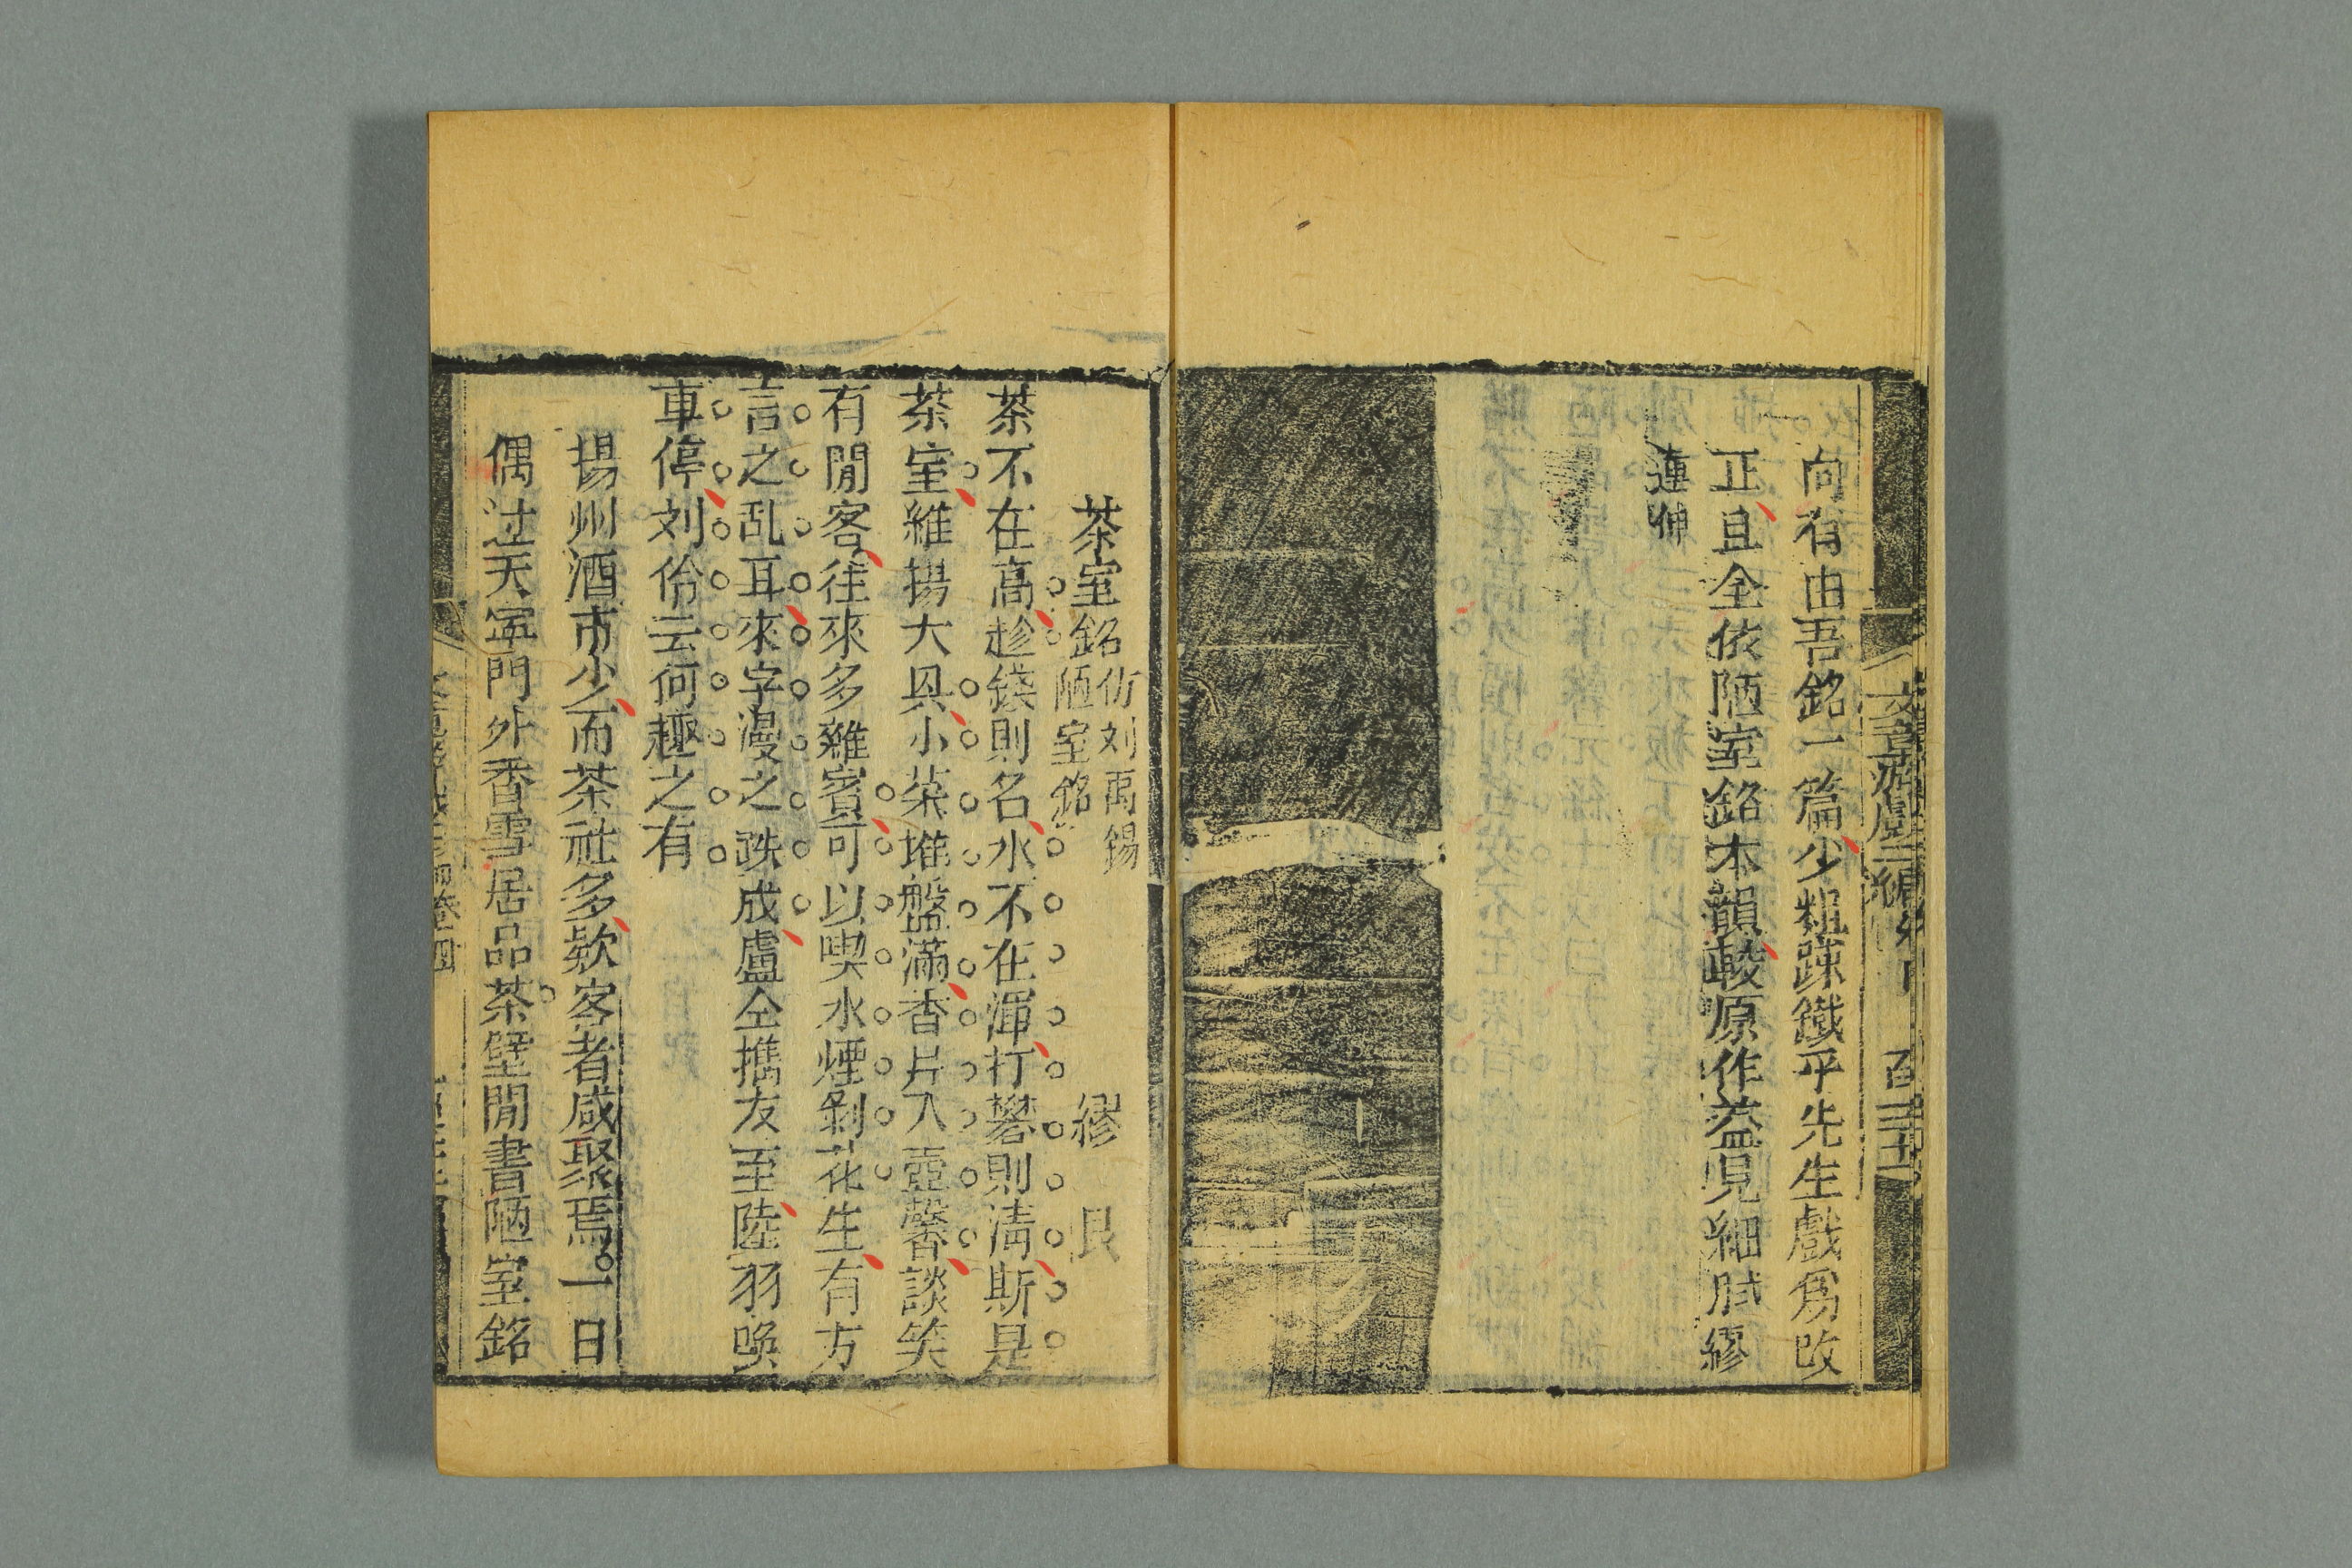 向有由吾銘一篇少粗疎鐵平先生戲爲改
正且全依陋室銘本韻較原作益見細膩繆
蓮仙
茶室銘 仿刘禹錫陋室銘 繆艮
茶不在高趁錢則名水不在渾打礬則清斯是
茶室維揚大具小菜堆盤滿香片入壺馨談笑
有閒客往來多雜賓可以喫水煙剝花生有方
言之乱耳來字漫之跌成盧仝攜友至陸羽喚
車停刘伶云何趣之有
揚州酒市少而茶社多欵客者咸聚焉一日
偶过天寧門外香雪居品茶壁間書陋室銘